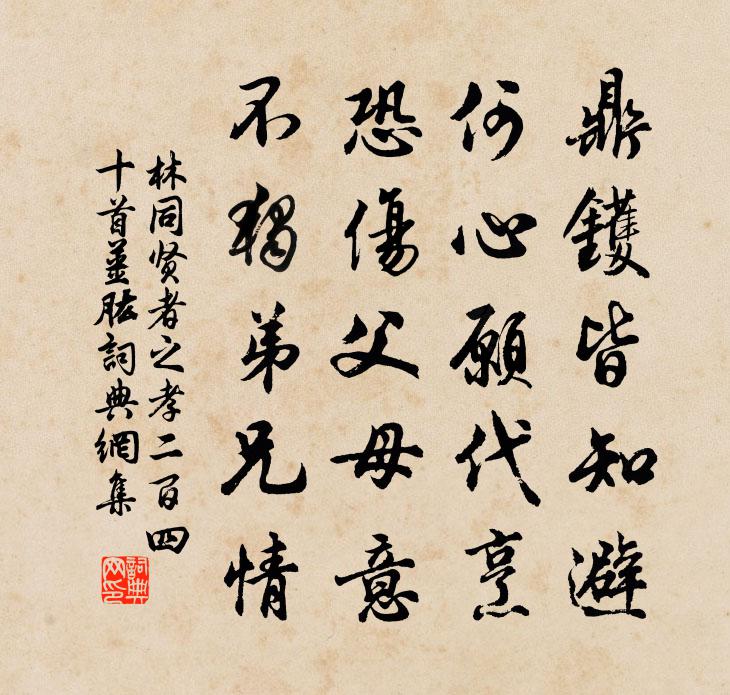 鼎鑊皆知避
何心願代烹
恐傷父母意
不獨弟兄情
林同贤者之孝二百四
十首姜肱詞典網集
詞典
网印